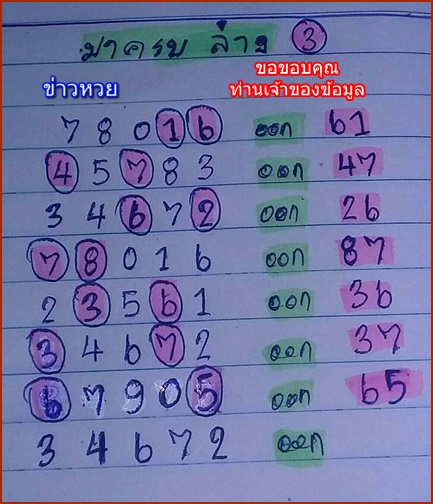 มาครบ ล่าง 3
ข่าวหวย
ขอขอบคุณ
ท่านเจ้าของข้อมูล
7 8 0 1 6 ออก 61
4 5 7 8 3 ออก 47
3 4 6 7 2 ออก 26
7 8 0 1 6 ออก 87
2 3 5 6 1 ออก 36
3 4 6 7 2 ออก 37
6 7 9 0 5 ออก 65
3 4 6 7 2 ออก